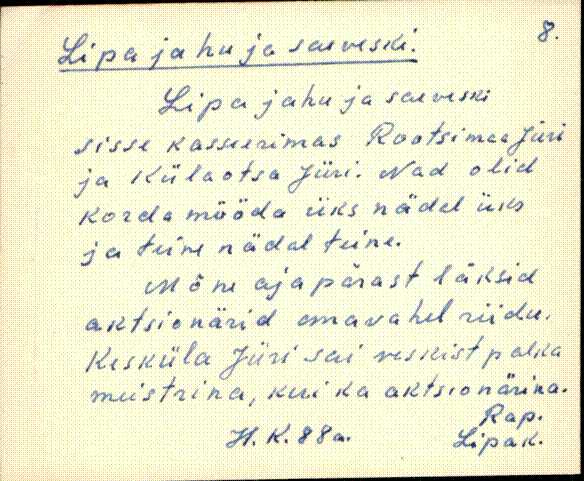 8.
Lipa jahu ja saeveski.
Lipa jahu ja saeveski
sisse kasseerimas Rootsimaa Jüri
ja Külaotsa Jüri. Nad olid
korda mööda üks nädal üks
ja teine nädal teine.
Mõne aja pärast läksid
aktsionärid omavahel riidu.
Kesküla Jüri sai veskist palka
meistrina, kui ka aktsionärina.
Rap.
H. K. 88 a. Lipa k.